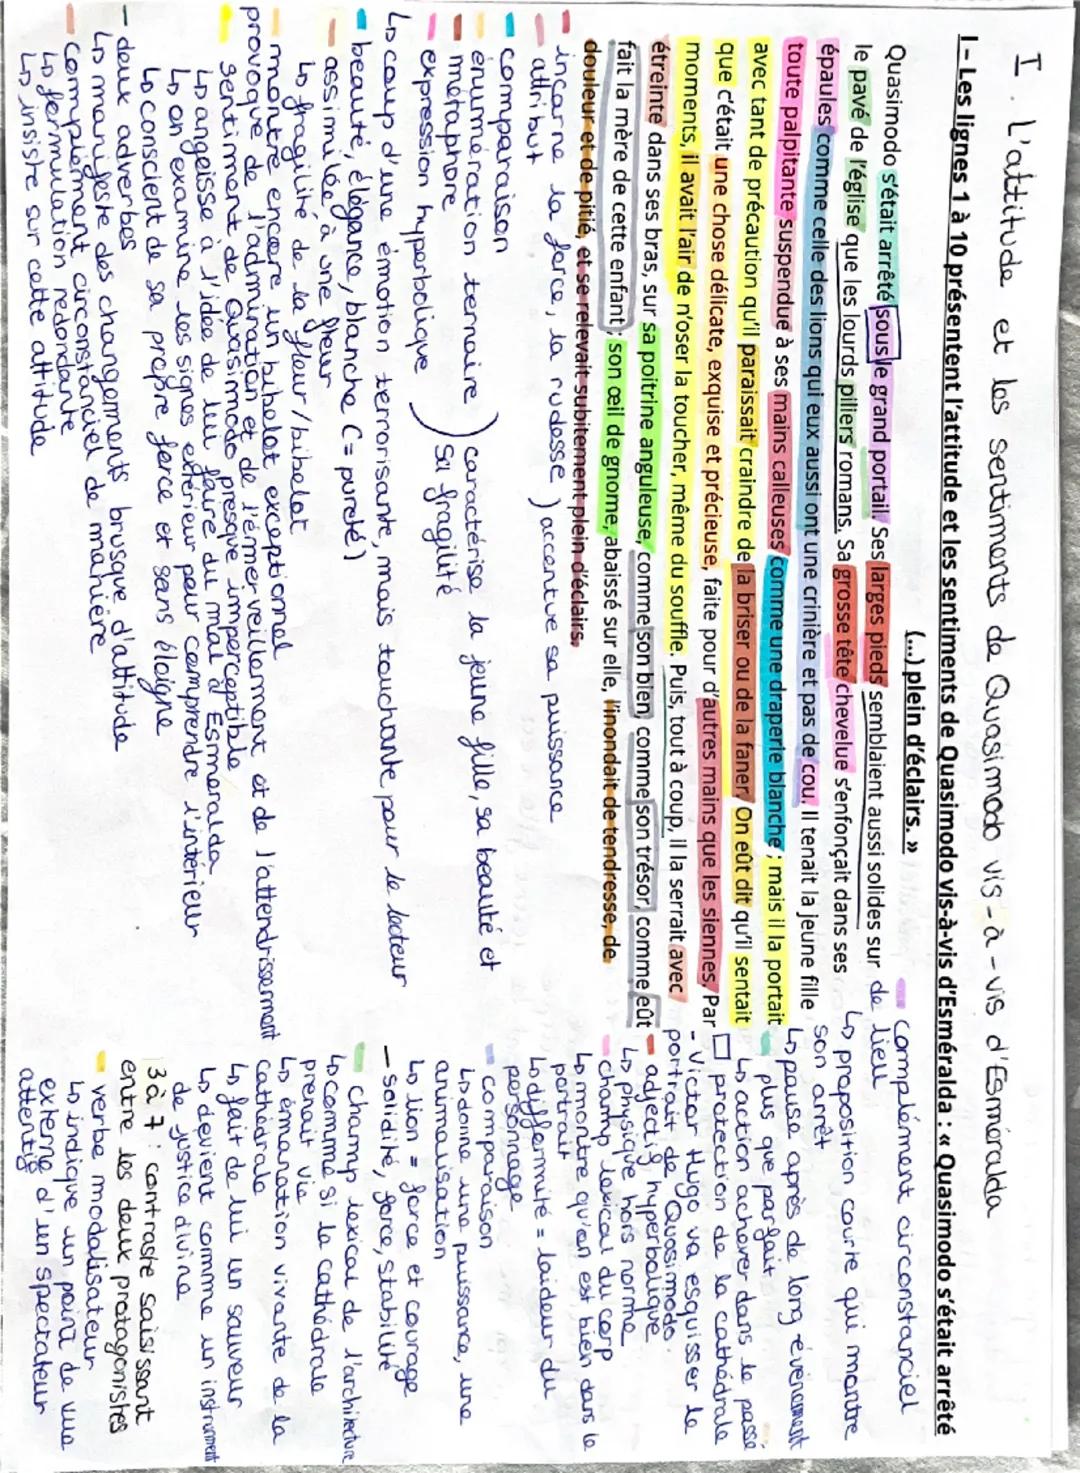 I. L'attitude et les sentiments de Quasimodo vis-à-vis d'Esméralda
I- Les lignes 1 à 10 présentent l'attitude et les sentiments de Quasimodo vis-à-vis d'Esméralda : « Quasimodo s'était arrêté
(...) plein d'éclairs. »
Quasimodo s'était arrêté sous le grand portail. Ses larges pieds semblaient aussi solides sur
le pavé de l'église que les lourds piliers romans. Sa grosse tête chevelue s'enfonçait dans ses
épaules comme celle des lions qui eux aussi ont une crinière et pas de cou. Il tenait la jeune fille
toute palpitante suspendue à ses mains calleuses comme une draperie blanche ; mais il la portait
avec tant de précaution qu'il paraissait craindre de la briser ou de la faner. On eût dit qu'il sentait
que c'était une chose délicate, exquise et précieuse, faite pour d'autres mains que les siennes. Par
moments, il avait l'air de n'oser la toucher, même du souffle. Puis, tout à coup, il la serrait avec
étreinte dans ses bras, sur sa poitrine anguleuse, comme son bien, comme son trésor, comme eût
fait la mère de cette enfant ; son œil de gnome, abaissé sur elle, l'inondait de tendresse, de
douleur et de pitié, et se relevait subitement plein d'éclairs.
- incarne la force, la rudesse ) accentue sa puissance
- attribut
- comparaison
- énumération ternaire ) caractérise la jeune fille, sa beauté et
- métaphore
- expression hyperbolique ) sa fragilité
↳ coup d'une émotion terrorisante, mais touchante pour le lecteur
- beauté, élégance, blanche (= pureté)
- assimilée à une fleur
↳ fragilité de la fleur / bibelot
- montre encore un bibelot exceptionnel
provoque de l'admiration et de l'émerveillement et de l'attendrissement
- sentiment de Quasimodo presque imperceptible
↳ angoisse à l'idée de lui faire du mal à Esmeralda
↳ on examine les signes extérieur pour comprendre l'intérieur
↳ conscient de sa propre force et sans éloigne
- deux adverbes
↳ manifeste des changements brusque d'attitude
- Complément circonstanciel de manière
↳ formulation redondante
↳ insiste sur cette attitude
- Complément circonstanciel
de lieu
↳ proposition courte qui montre
son arrêt
↳ pause après de long évènement
- plus que parfait
↳ action achever dans le passé
□ protection de la cathédrale
- Victor Hugo va esquisser le
portrait de Quasimodo.
- adjectif hyperbolique
↳ physique hors norme
- champ lexical du corp
↳ montre qu'on est bien dans le
portrait
↳ difformité = laideur du
personage
- comparaison
↳ donne une puissance, une
animalisation
↳ lion = force et courage
- solidité, force, stabilité
- Champ lexical de l'architecture
↳ comme si la cathédrale
prenait vie
↳ émanation vivante de la
cathédrale
↳ fait de lui un sauveur
↳ devient comme un instrument
de justice divine
3 à 7 : contraste saisissant
entre les deux protagonistes
- verbe modalisateur
↳ indique un point de vue
externe d'un spectateur
attentif